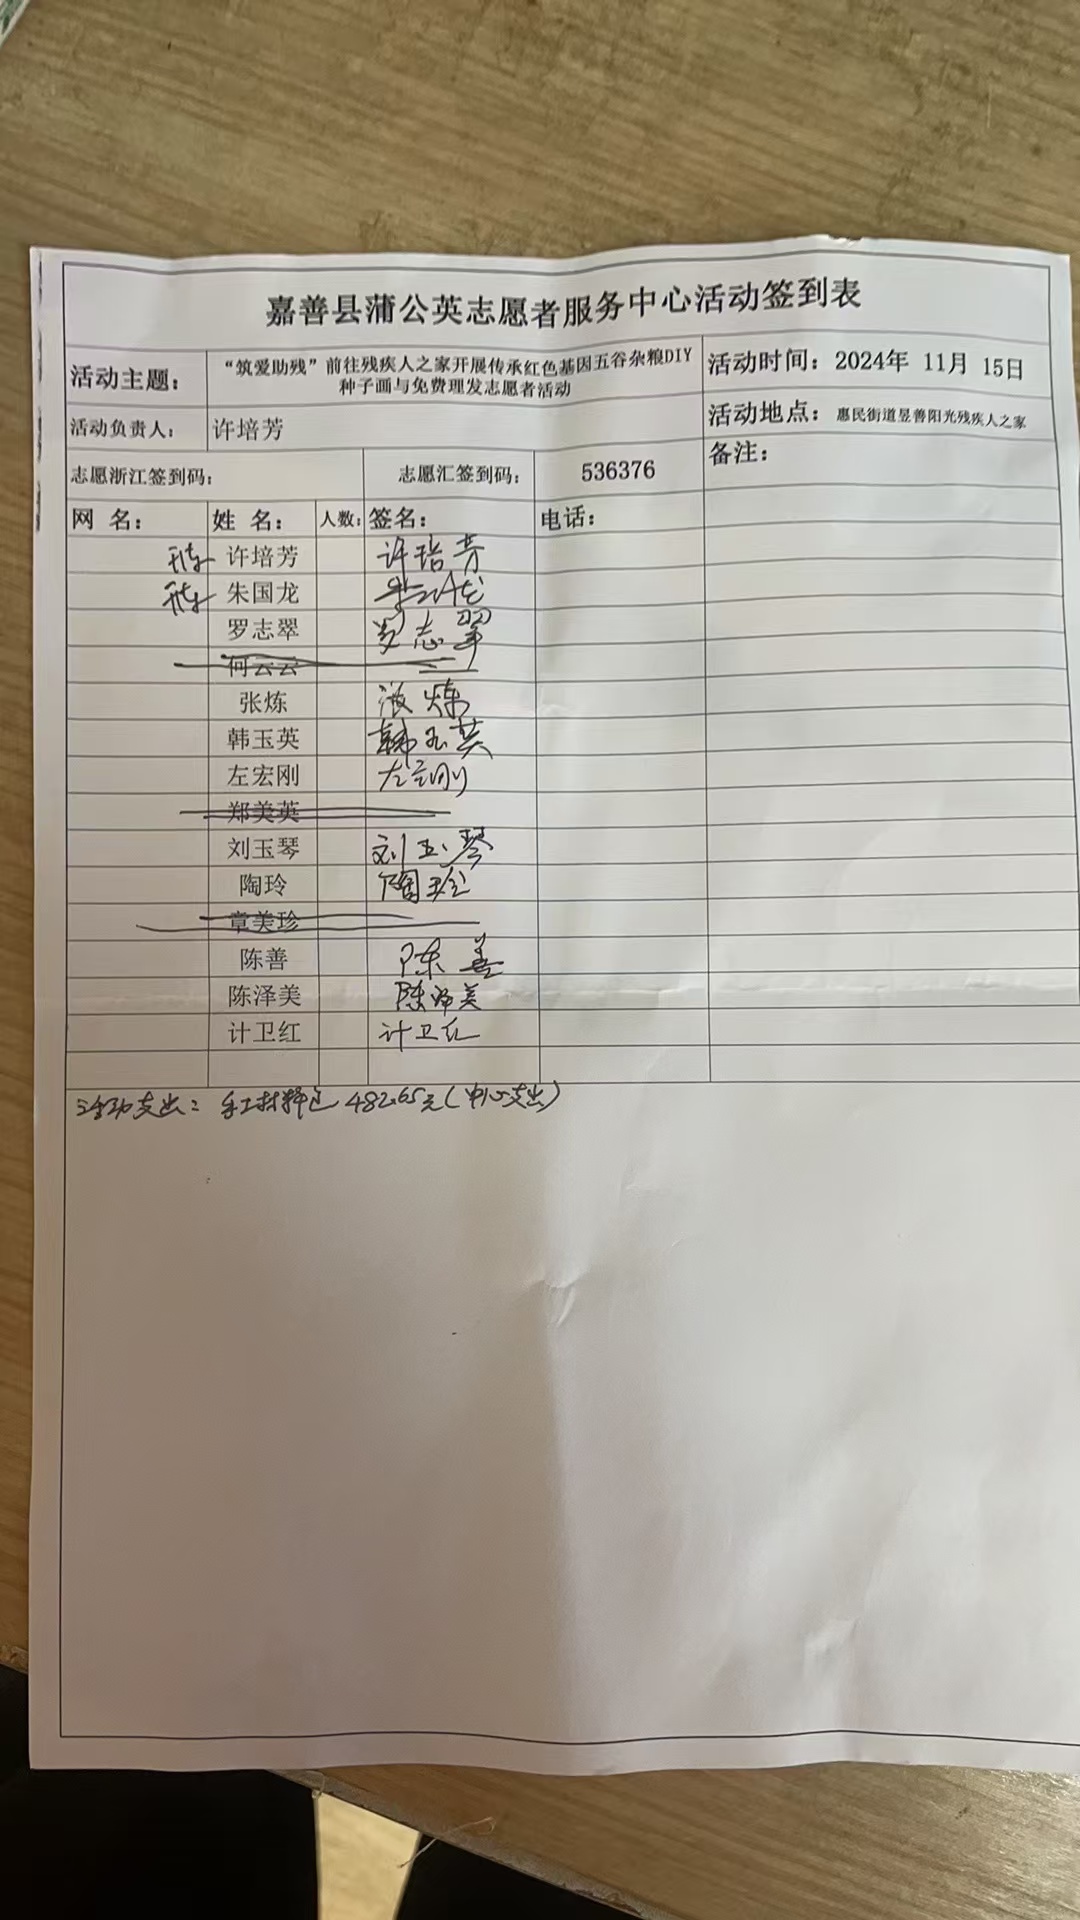 嘉善县蒲公英志愿者服务中心活动签到表
活动主题： “筑爱助残”前往残疾人之家开展传承红色基因五谷杂粮DIY
种子画与免费理发志愿者活动
活动时间：2024年 11月 15日
活动负责人： 许培芳
活动地点：惠民街道昱善阳光残疾人之家
志愿浙江签到码： 志愿汇签到码： 536376 备注：
网 名： 姓 名： 人数： 签名： 电话：
开车 许培芳 许培芳
开车 朱国龙 朱国龙
罗志翠 罗志翠
何云云
张炼 张炼
韩玉英 韩玉英
左宏刚 左宏刚
郑美英
刘玉琴 刘玉琴
陶玲 陶玲
章美珍
陈善 陈善
陈泽美 陈泽美
计卫红 计卫红
活动支出：手工材料包 482.65元(中心支出)